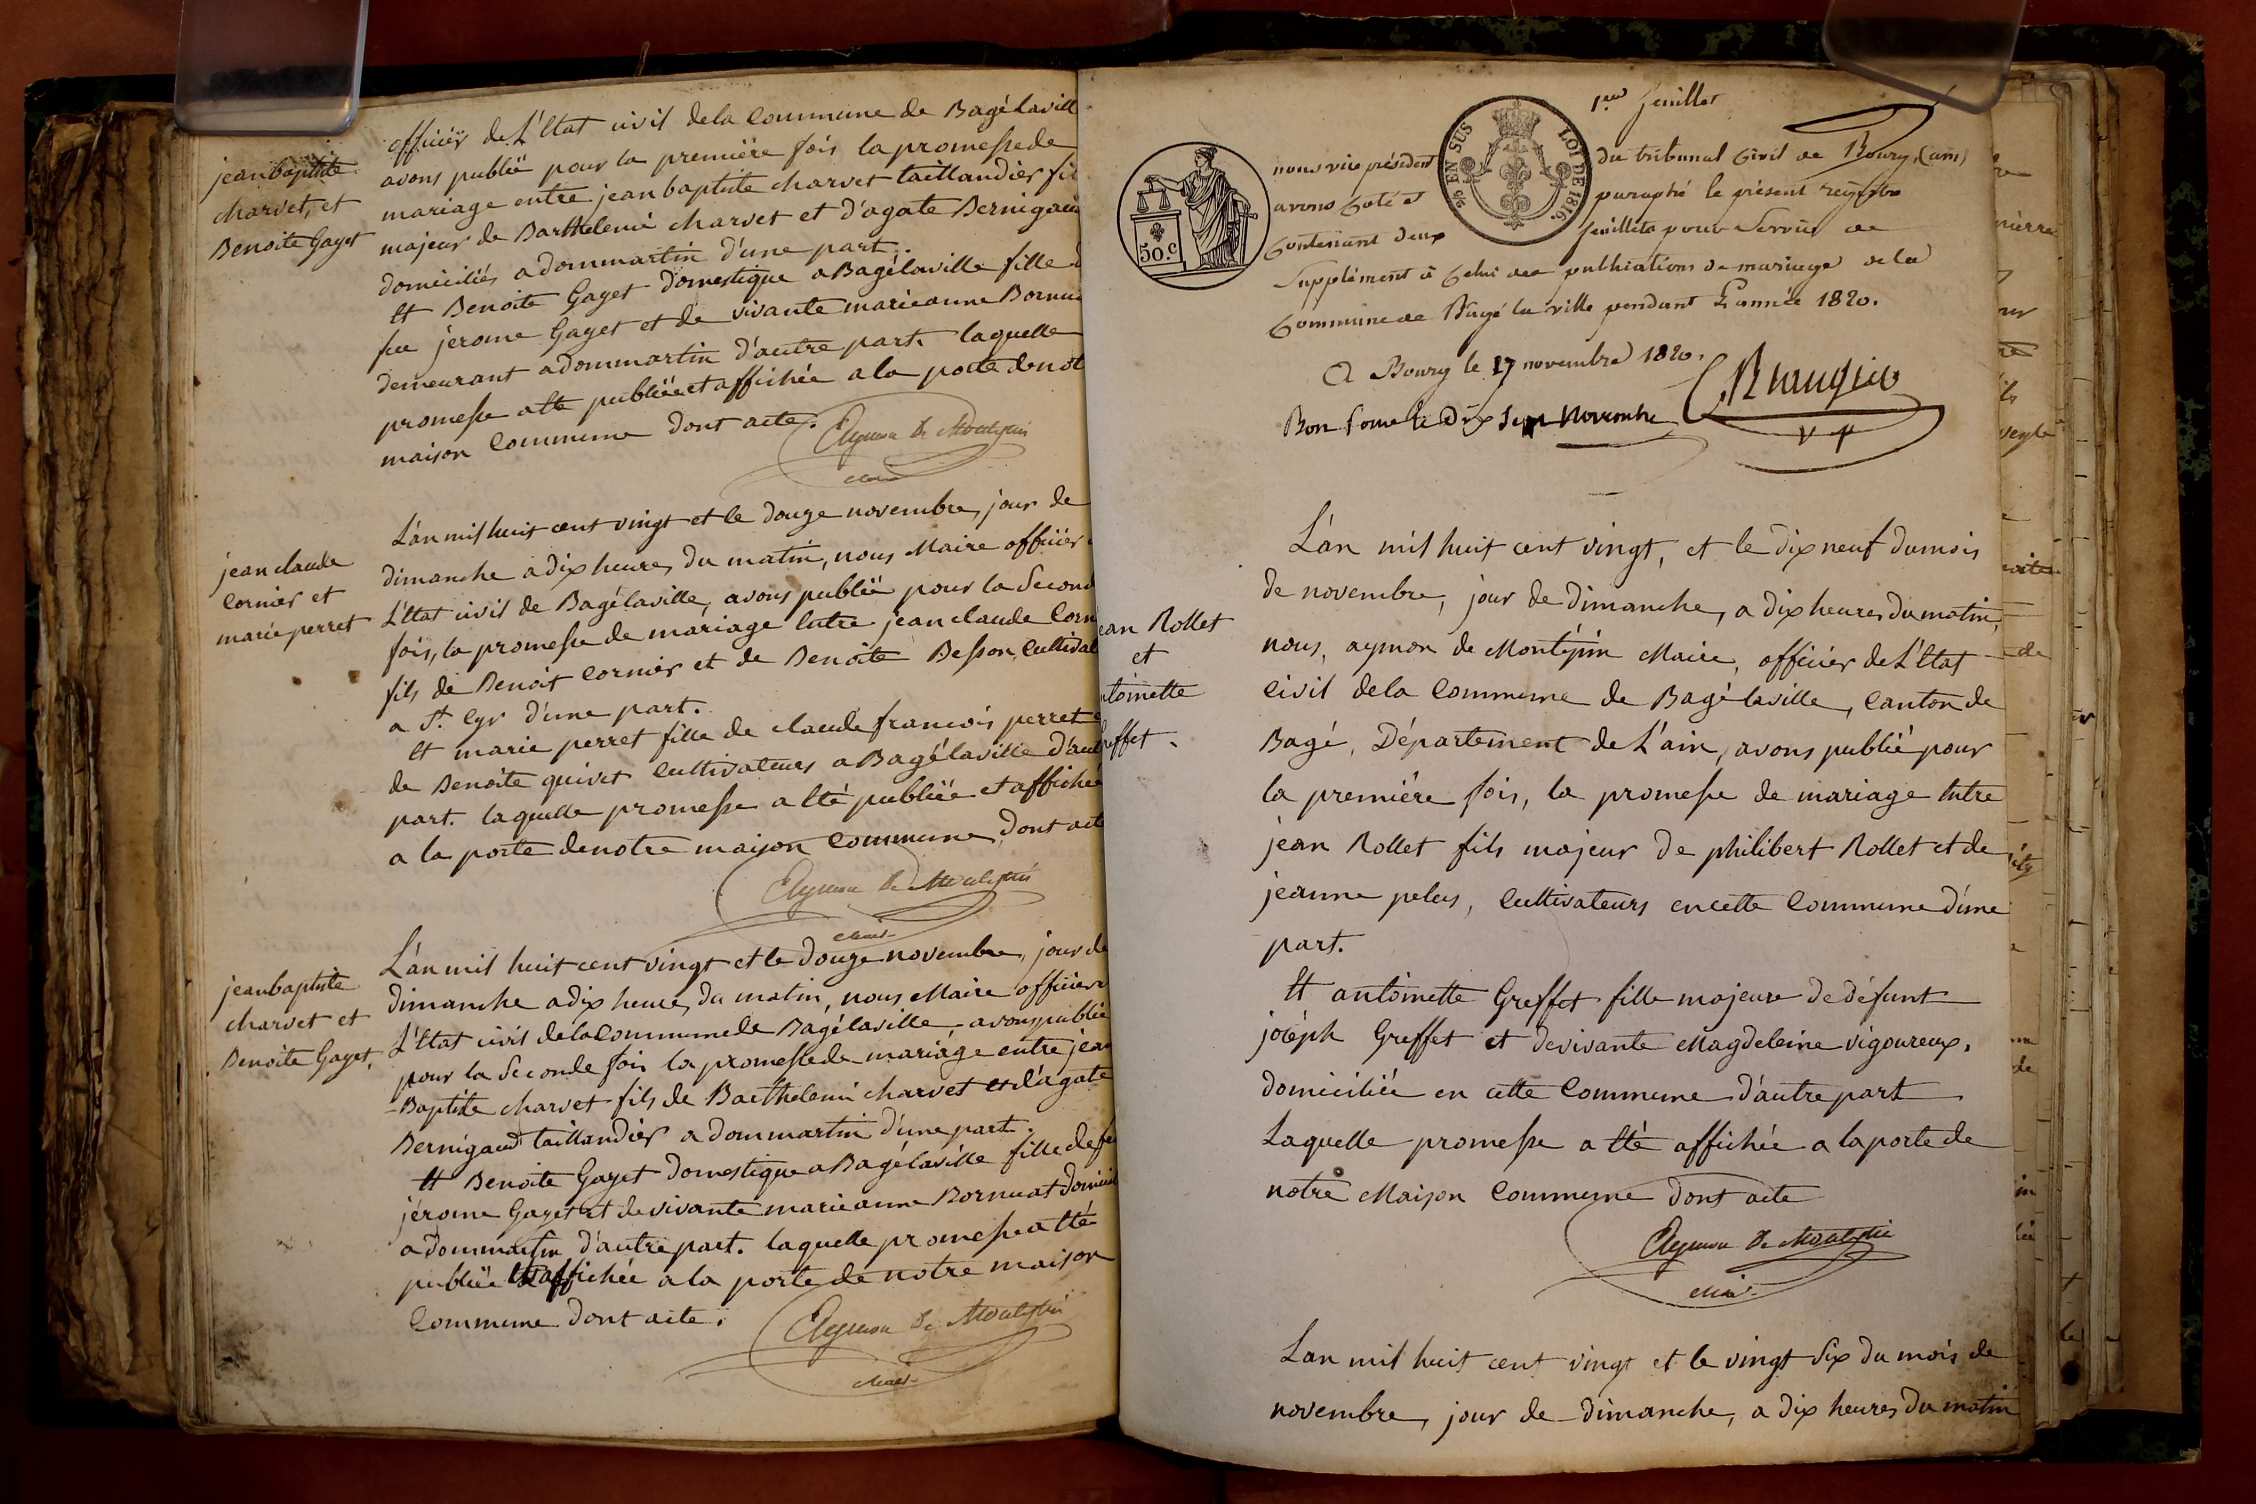 officiër de L'Etat civil dela Commune de Bagélavill
avons publië pour la premiëre fois la promesse de
mariage entre jean baptiste charvet taillandiér fil
majeur de Barthelemi charvet et d'agate Bernigaud
domiciliés a dommartin d'une part.
Et Benoite Gayet domestique a Bagélaville fille d
feu jerome Gayet et de vivante marieanne Bornua
demeurant a dommartin d'autre part. laquelle
promesse a été publiëe et affichée a la porte de not
maison Commune dont acte.
Aymon De Montépin
Maire
jean baptiste
charvet, et
Benoite Gayet
L'an mil huit cent vingt et le douze novembre, jour de
dimanche a dix heures du matin, nous Maire officiér
L'Etat civil de Bagélaville, avons publië pour la Second
fois, la promesse de mariage Entre jean claude Corn
fils de Benoit Cornier et de Benoite Besson, Cultivat
a St. Cyr d'une part.
Et marie perret fille de claude francois perret e
de Benoite quivet Cultivateurs a Bagélaville d'aut
part. laquelle promesse a Eté publiëe et affichée
a la porte de notre maison Commune, dont act
Aymon De Montépin
Maire
jean claude
Cornier et
marie perret
L'an mil huit cent vingt et le douze novembre, jour de
dimanche a dix heures du matin, nous Maire officier
L'Etat civil de la Commune de Bagélaville, avons publié
pour la Seconde fois la promesse de mariage entre jean
-Baptiste charvet fils de Barthelemi charvet et d'agate
Bernigaud taillandiér a dommartin d'une part.
Et Benoite Gayet domestique a Bagélaville fille de fe
jérome Gayet et de vivante marieanne Bornuat domicil
a dommartin d'autre part. laquelle promesse a Eté
publiëe Et affichée a la porte de notre maison
Commune dont acte.
Aymon De Montépin
Maire
jean baptiste
charvet et
Benoite Gayet,
1er feuillet
EN SUS
LOI DE 1816.
50.c
nous vice président du tribunal Civil de Bourg, (ain)
avons Coté et paraphé le présent registre
Contenant deux feuillets pour Servir de
Supplément à Celui des publications de mariage de la
Commune de Bagé la ville pendant L'année 1820.
A Bourg le 17 novembre 1820.
Bon pour le Dix Sept Novembre
V P
L'an mil huit cent vingt, et le dix neuf du mois
de novembre, jour de dimanche, a dix heures du matin,
nous, aymon de Montépin Maire, officier de L'Etat
Civil dela Commune de Bagélaville, Canton de
Bagé, Département de L'ain, avons publié pour
la première fois, la promesse de mariage Entre
jean Rollet fils majeur de philibert Rollet et de
jeanne pelus, Cultivateurs en cette Commune d'une
part.
Et antoinette Greffet fille majeure de défunt
joseph Greffet et de vivante Magdeleine vigoureux,
domiciliée en cette Commune d'autre part
Laquelle promesse a Eté affichée a la porte de
notre Maison Commune dont acte
Aymon De Montépin
Maire
ean Rollet
et
ntoinette
reffet
Lan mil huit cent vingt et le vingt Six du mois de
novembre, jour de dimanche, a dix heures du matin